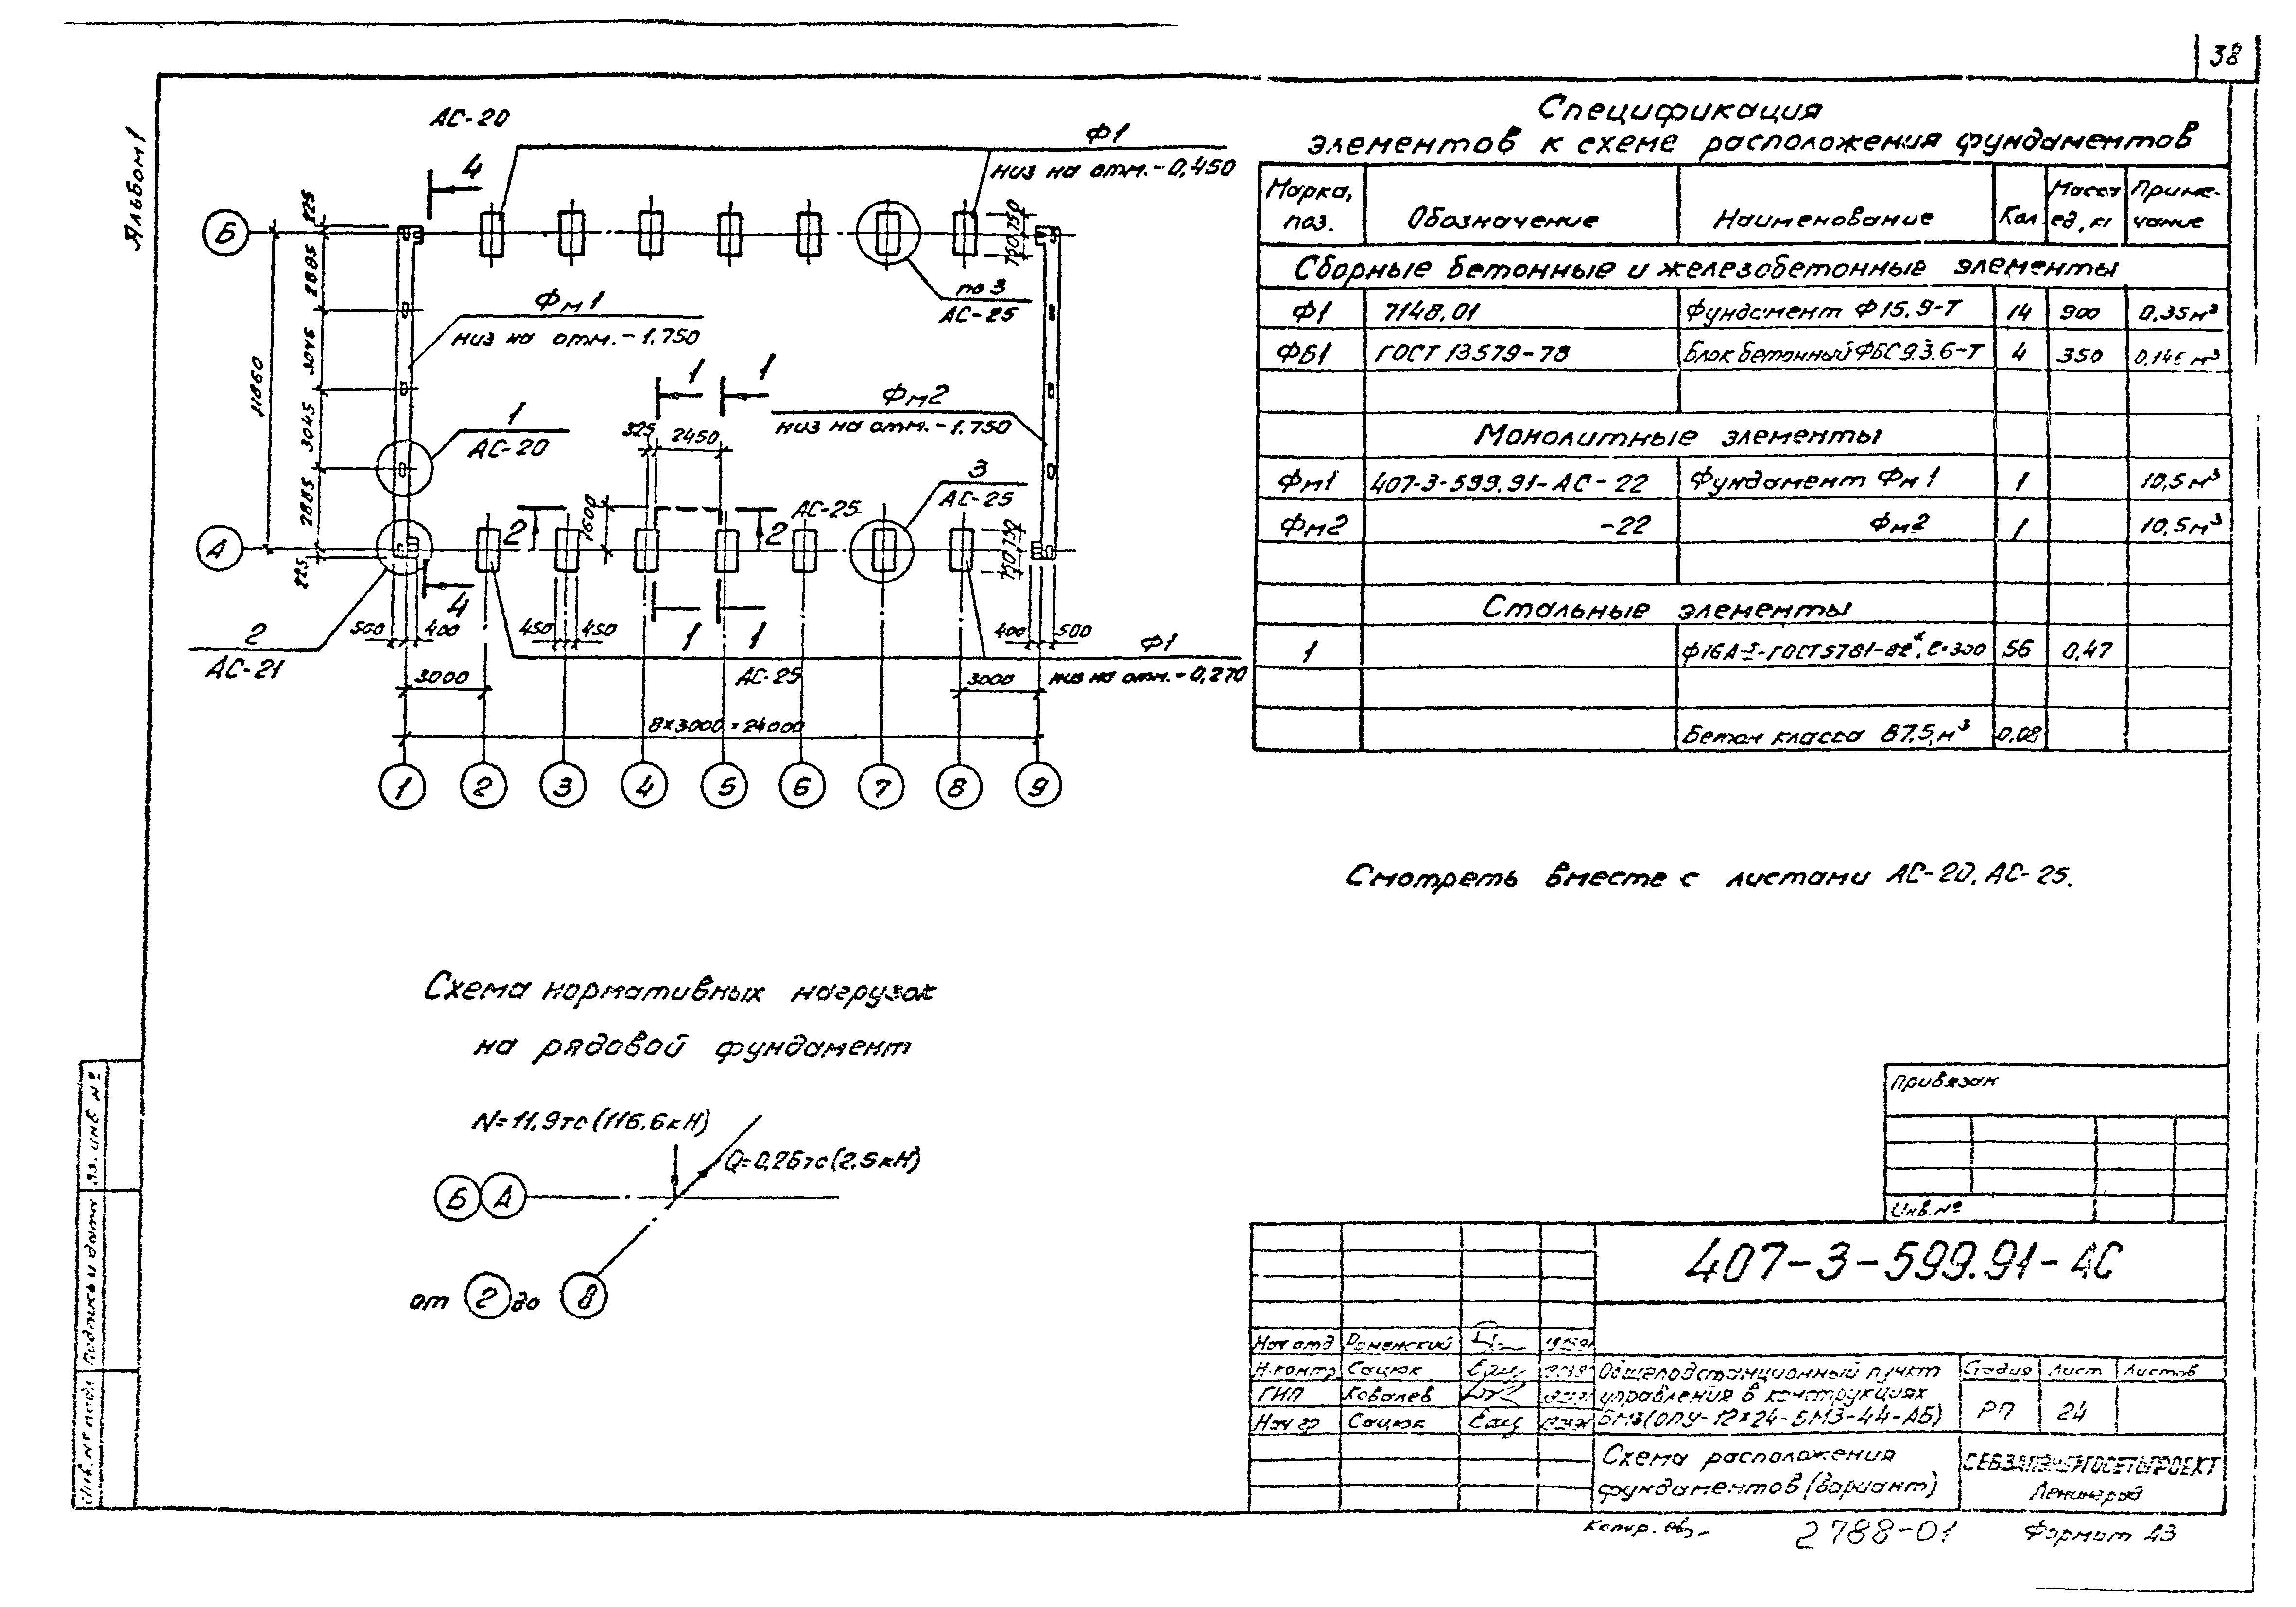 38
Альбом 1
АС-20
4
Ф1
низ на отм.-0,450
Б
225
2885
3045
3045
2885
225
11860
750 750
по 3
АС-25
Фм1
низ на отм.-1.750
1
1
Фм2
низ на отм.-1.750
1
АС-20
325
2450
3
АС-25
1600
АС-25
2
2
А
750 750
4
1
1
2
АС-21
500
400
450
450
400
500
Ф1
низ на отм.-0,270
АС-25
3000
3000
8х3000=24000
1
2
3
4
5
6
7
8
9
Спецификация
элементов к схеме расположения фундаментов
Марка, поз.
Обозначение
Наименование
Кол
Масса ед, кг
Приме-чание
Сборные бетонные и железобетонные элементы
Ф1 7148.01 Фундамент Ф15.9-Т 14 900 0,35м³
ФБ1 ГОСТ 13579-78 Блок бетонный ФБС9.3.6-Т 4 350 0,146 м³
Монолитные элементы
Фм1 407-3-599.91-АС-22 Фундамент Фм1 1 10,5м³
Фм2 -22 Фм2 1 10,5м³
Стальные элементы
1 Ф16А-I-ГОСТ5781-82*, ℓ=300 56 0,47
Бетон класса В7.5, м³ 0,08
Смотреть вместе с листами АС-20, АС-25.
Схема нормативных нагрузок
на рядовой фундамент
N=11,9тс(116.6кН)
Q=0,26тс(2.5кН)
Б А
от 2 до 8
Привязан
Инв.№
407-3-599.91-АС
Нач отд Роменский
Н.контр Сацюк
ГИП Ковалев
Нач гр Сацюк
Общеподстанционный пункт
управления в конструкциях
БМЗ(ОПУ-12х24-БМЗ-44-АБ)
Стадия Лист Листов
РП 24
Схема расположения
фундаментов (вариант)
СЕВЗАПЭНЕРГОСЕТЬПРОЕКТ
Ленинград
Инв.№ подл
Подпись и дата
Вз. инв №
Копир.
2788-01
Формат А3